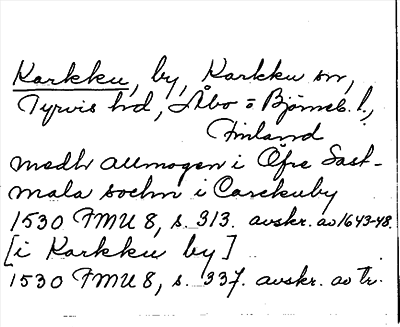 Karkku, by, Karkku sn,
Tyrvis hd, Åbo o Björneb. l.,
Finland
medh allmogen i Öfre Sast-
mala sochn i Carckuby
1530 FMU 8, s. 313. avskr. av 1643-48.
[i Karkku by]
1530 FMU 8, s. 337. avskr. av Tr.